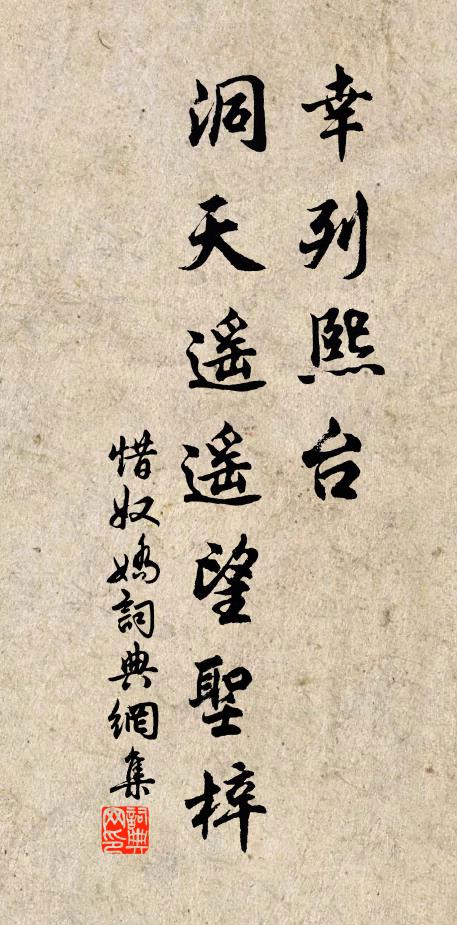 幸列熙台
洞天遥遥望聖梓
惜奴嬌詞典網集
詞典网印